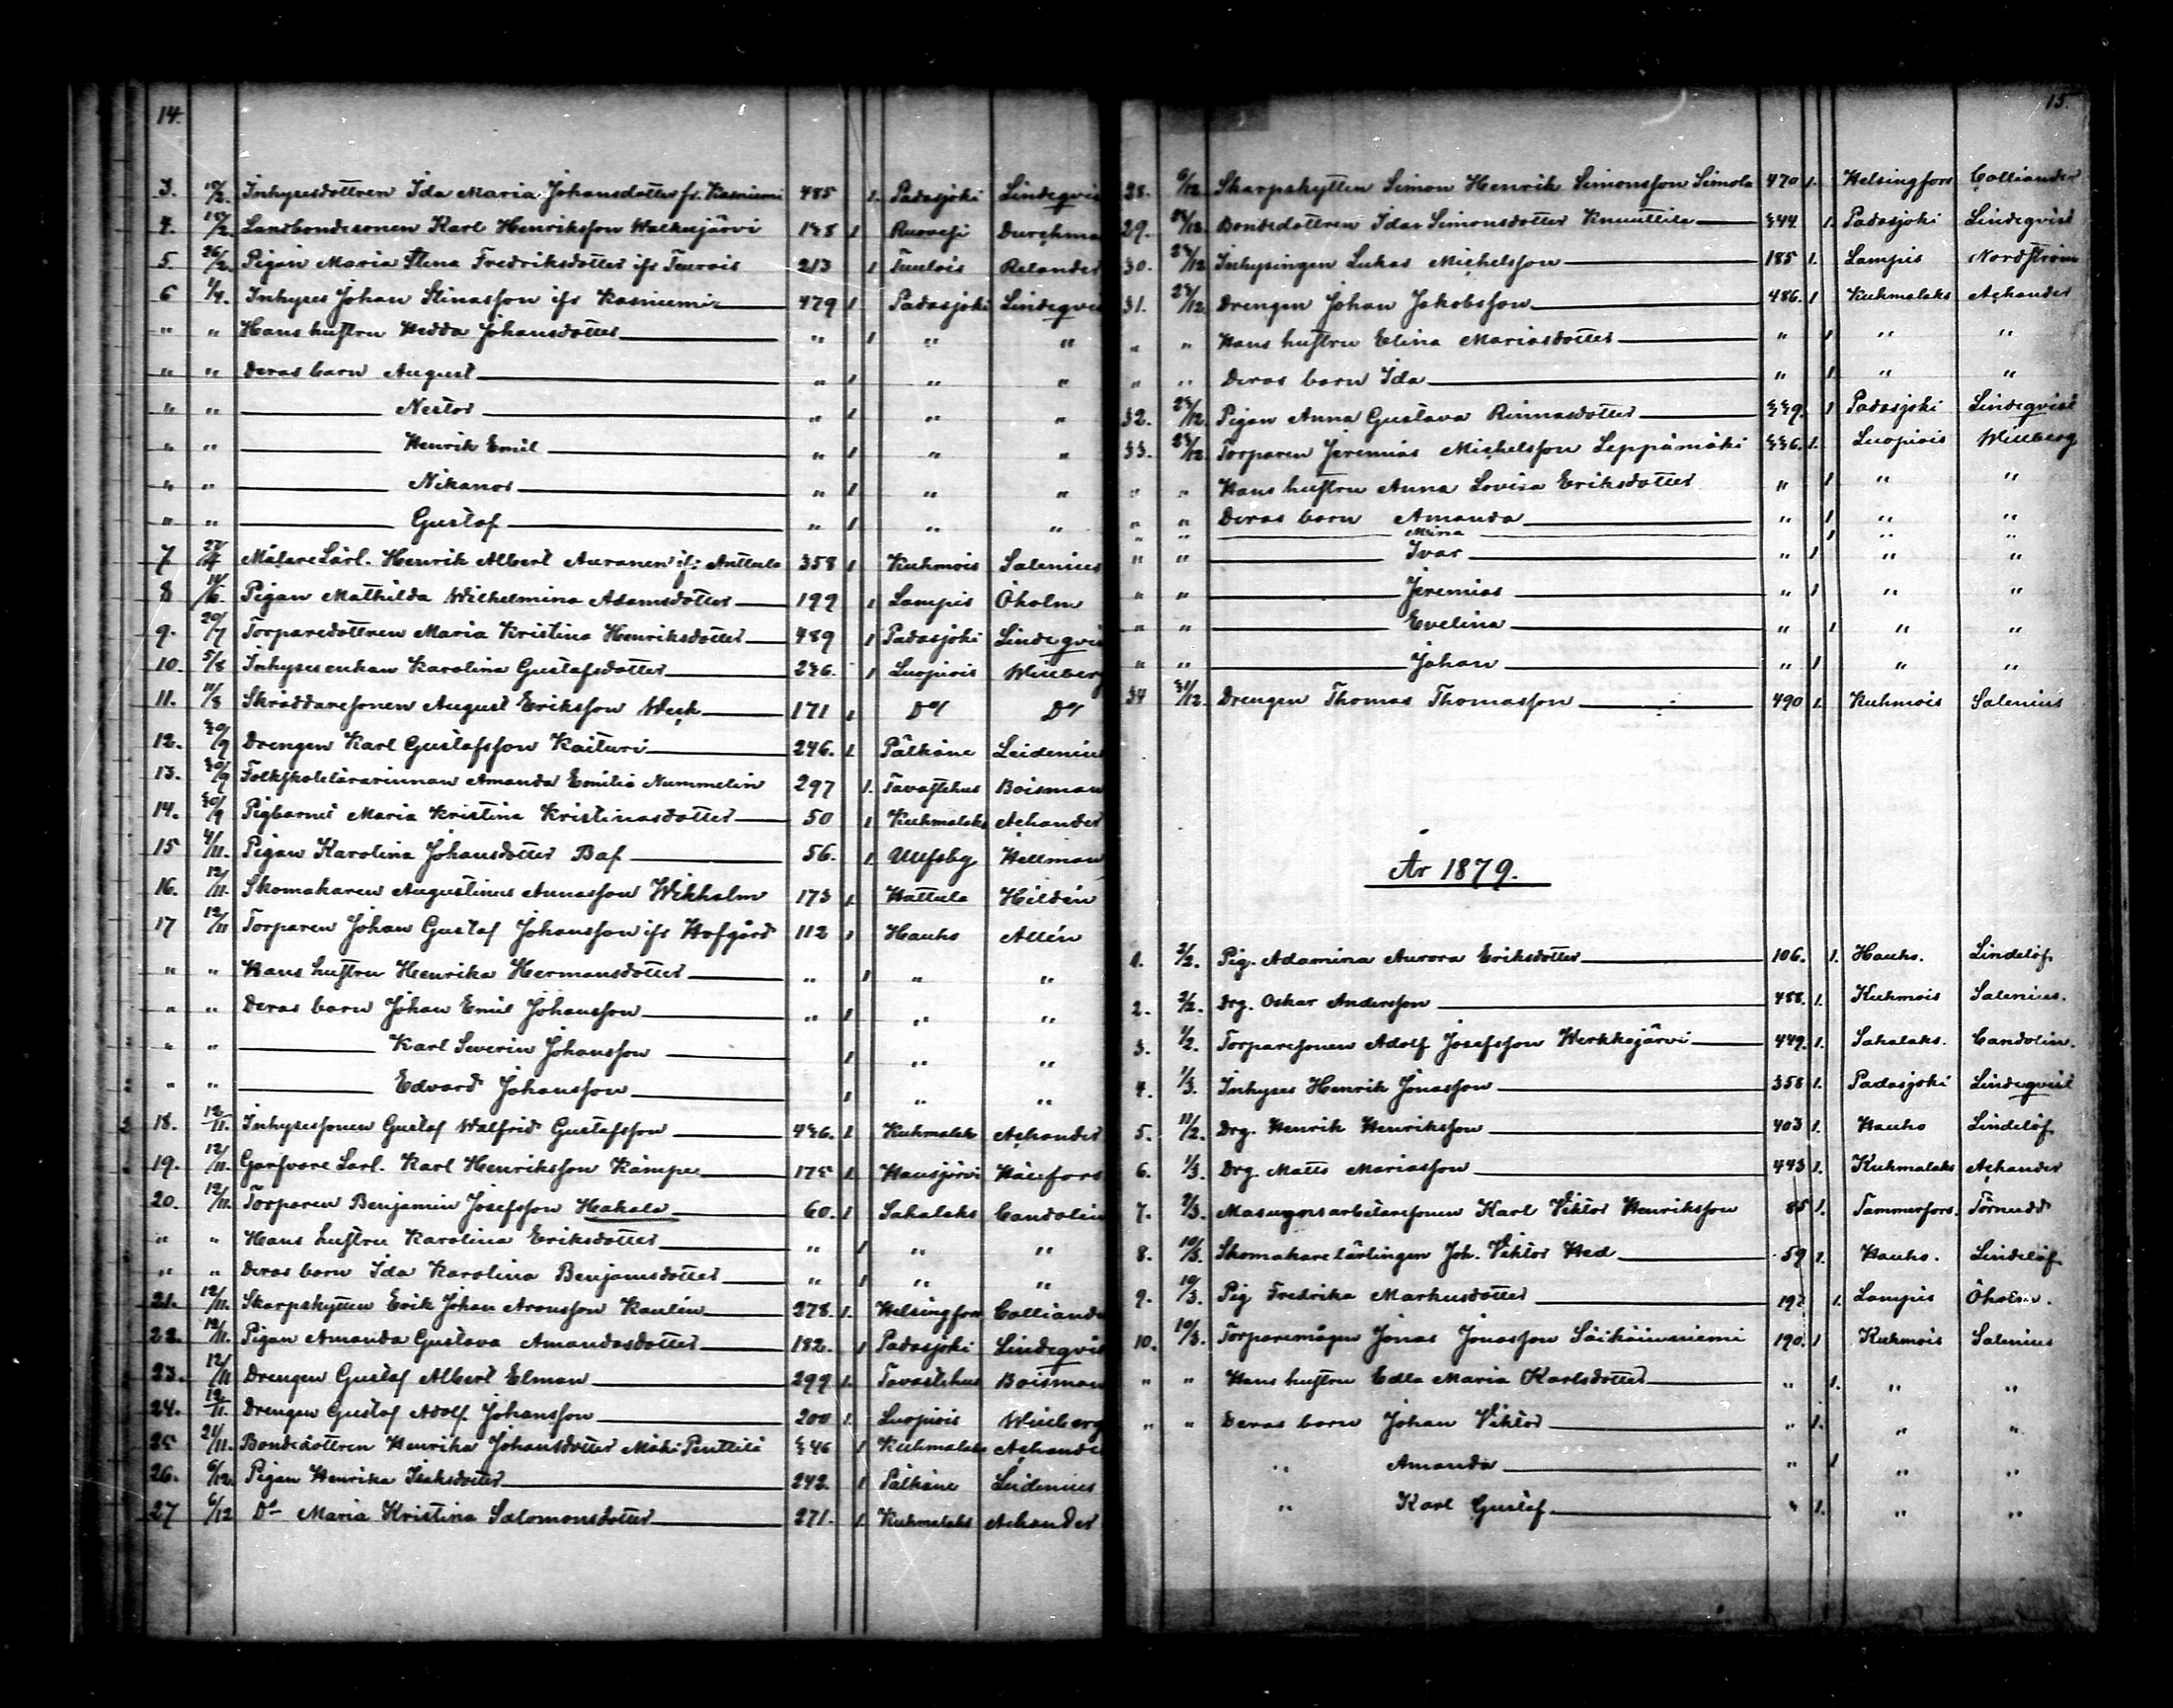 14.
3. 10/2. Inhysesdottren Ida Maria Johansdotter fr. Kasniemi 485 1. Padasjoki Lindeqvis
4. 15/2. Landbondesonen Karl Henriksson Walkejärvi 138 1 Ruovesi Durchma
5. 26/2. Pigan Maria Stina Fredriksdotter ifr Teurois 213 1 Tuulois Relander
6 1/4. Inhyses Johan Stinasson ifr Kasniemi 479 1 Padasjoki Lindeqvis
" " Hans hustru Hedda Johansdotter " 1 " "
" " Deras barn August " 1 " "
" " Nestor " 1 " "
" " Henrik Emil " 1 " "
" " Nikanor " 1 " "
" " Gustaf " 1 " "
7 27/4 Målare Lärl. Henrik Albert Auranen ifr Anttula 358 1 Kuhmois Salenius
8 14/6. Pigan Mathilda Wilhelmina Adamsdotter 199 1 Lampis Öholm
9. 20/7 Torparedottren Maria Kristina Henriksdotter 489 1 Padasjoki Lindeqvis
10. 5/8 Inhysesenkan Karolina Gustafsdotter 236. 1 Luopiois Willberg
11. 11/8 Skräddaresonen August Eriksson Week 171 1 Do/ Do/
12. 30/9 Drengen Karl Gustafsson Kaituri 246. 1. Pälkäne Leidenius
13. 30/9 Folkskolelärarinnan Amanda Emilia Nummelin 297 1. Tavastehus Boisman
14. 30/9 Pigbarnet Maria Kristina Kristinasdotter 50 1 Kuhmalaks Achander
15 4/11. Pigan Karolina Johansdotter Baf 56. 1. Ulfsby Hellman
16. 12/11. Skomakaren Augustinus Annasson Wikholm 173 1. Hattula Hildén
17 12/11 Torparen Johan Gustaf Johansson ifr Hofgård 112 1 Hauho Allén
" " Hans hustru Henrika Hermansdotter " 1 " "
" " Deras barn Johan Emil Johansson " 1 " "
" " Karl Severin Johansson 1 " "
" " Edvard Johansson 1 " "
18. 12/11. Inhysessonen Gustaf Walfrid Gustafsson 436. 1. Kuhmalak Achander
19. 12/11. Garfvare Lärl. Karl Henriksson Kämpe 175 1. Hausjärvi Hällfors
20. 12/11. Torparen Benjamin Josefsson Hakala 60. 1 Sahalaks Candolin
" " Hans hustru Karolina Eriksdotter " 1 " "
" " Deras barn Ida Karolina Benjamsdotter " 1 " "
21. 12/11. Skarpskytten Erik Johan Aronsson Kaulin 278. 1. Helsingfors Collianda
22. 12/11. Pigan Amanda Gustava Amandasdotter 182. 1 Padasjoki Lindeqvis
23. 12/11 Drengen Gustaf Albert Elman 299 1. Tavastehus Boisman
24. 12/11. Drengen Gustaf Adolf Johansson 200 1. Luopiois Willberg
25 21/11. Bondedottren Henrika Johansdotter Mäki Penttilä 346 1 Kuhmalaks Achande
26. 6/12. Pigan Henrika Isaksdotter 242. 1 Pälkäne Leidenius
27 6/12 Do Maria Kristina Salomonsdotter 271. 1 Kuhmalaks Achander
15.
28. 6/12. Skarpskytten Simon Henrik Simonsson Simola 470 1. Helsingfors Colliander
29. /12. Bondedottren Ida Simonsdotter Knuuttila 344 1. Padasjoki Lindeqvist
30. 28/12 Inhysingen Lukas Michelsson 185 1. Lampis Nordström
31. 28/12 Drengen Johan Jakobsson 486. 1 Kuhmalaks Achander
" " Hans hustru Elina Mariasdotter " 1 " "
" " Deras barn Ida " 1. " "
32. 28/12. Pigan Anna Gustava Rinnasdotter 339. 1 Padasjoki Lindeqvist
33. 28/12. Torparen Jeremias Michelsson Leppämäki 336. 1. Luopiois Willberg
" " Hans hustru Anna Lovisa Eriksdotter " 1 " "
" " Deras barn Amanda " 1 " "
" " Mina 1 " "
" " Ivar " 1 " "
" " Jeremias " 1 " "
" " Evelina " 1 " "
" " Johan " 1 " "
34 31/12. Drengen Thomas Thomasson 490 1. Kuhmois Salenius
År 1879.
1. 2/2. Pig. Adamina Aurora Eriksdotter 106. 1. Hauho. Lindelöf
2. 2/2. Drg. Oskar Andersson 488. 1. Kuhmois Salenius.
3. 1/2. Torparesonen Adolf Josefsson Werkkojärvi 449. 1. Sahalaks. Candolin.
4. 1/3. Inhyses Henrik Jonasson 358 1. Padasjoki Lindeqvist
5. 11/2. Drg. Henrik Henriksson 403 1. Hauho Lindelöf
6. 1/3. Drg. Matts Mariasson 443 1. Kuhmalaks Achander
7. 2/3. Masugnsarbetaresonen Karl Viktor Henriksson 85 1. Tammerfors. Törnudd
8. 10/3. Skomakarelärlingen Joh. Viktor Hed 59 1. Hauho. Lindelöf
9. 10/3. Pig Fredrika Markusdotter 197 1. Lampis Öholm.
10. 10/3. Torparemågen Jonas Jonasson Säikäinniemi 190. 1 Kuhmois Salenius
" " Hans hustru Edla Maria Karlsdotter " 1. " "
" " Deras barn Johan Viktor " 1. " "
" Amanda " 1 " "
" Karl Gustaf " 1. " "